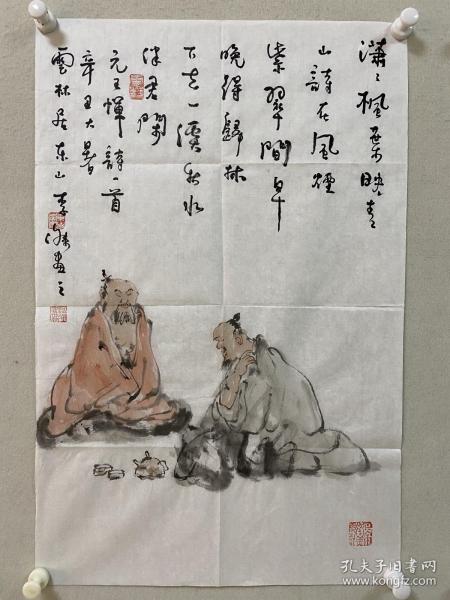 潇潇枫叶映青
山诗在风烟
紫翠间早
晚得归林
下去一溪秋水
伴君闲
元王惲詩一首
辛丑大暑
雲林居东山李
画之
孔夫子旧书网
www.kongfz.com